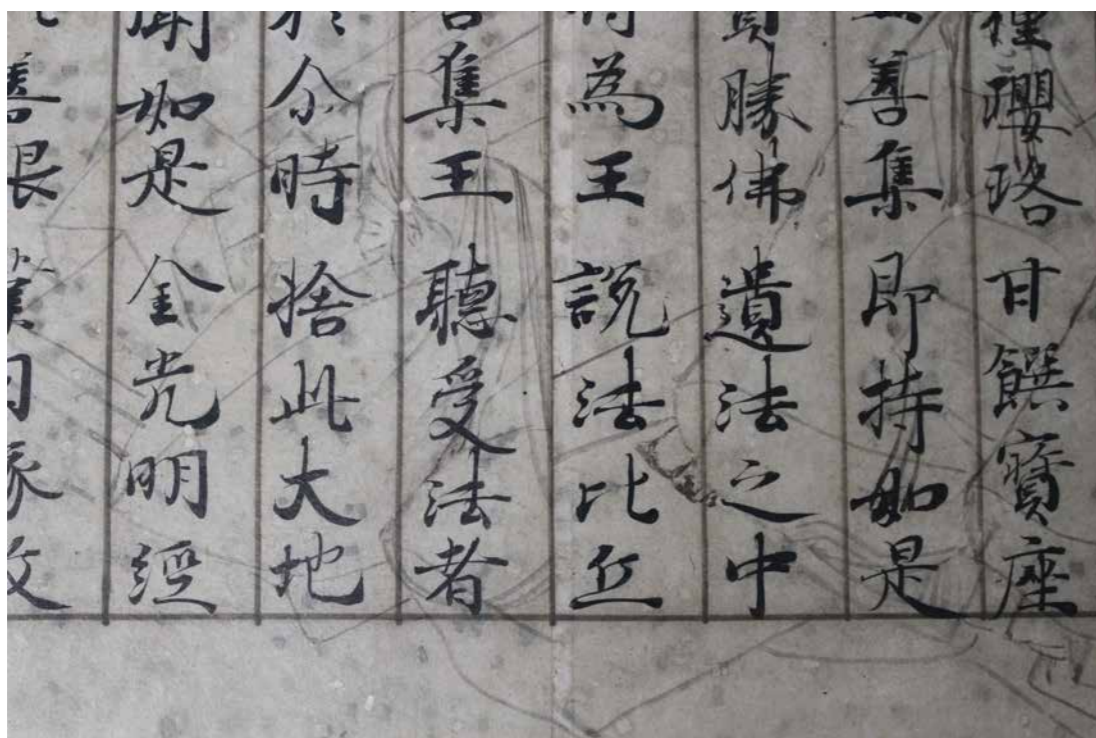 種瓔珞 甘饌寶座
善集 即持如是
寶勝佛 遺法之中
時為王 說法比丘
善集王 聽受法者
於尒時 捨此大地
聞如是 金光明經
善根